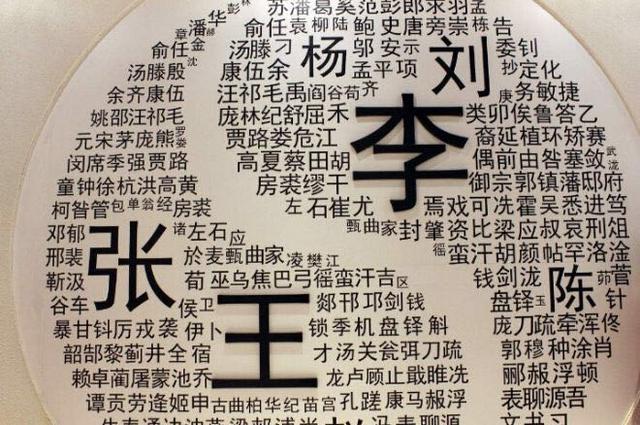 苏潘葛奚范彭郎
俞任袁柳鲍史唐
杨
刘
李
张
王
陈
汤滕刁
邬安
委钊
俞任
康伍余
孟平项
抄定化
汤滕殷
汪祁毛禹
务敏捷
余齐康伍
庞林纪舒屈禾
类卯俟鲁答乙
姚邵汪祁毛
贾路娄危江
裔延植环矫赛
元宋茅庞熊
高夏蔡田胡
偶前由昝塞敛
闵席季强贾路
房裘缪干
御宗郭镇潘邸府
童钟徐杭洪高黄
左石崔尤
焉戏可冼霍吴悉进笃
柯昝管包单翁经房裘
甄曲家封肇资比梁应叔哀刑俎
邓郁
诸左石应
徭蛮汗胡颜帖罕洛淦
邢裴
於麦甄曲家凌樊江
钱剑泷
菅
靳汲
荀巫乌焦巴弓徭蛮汗吉区
盘铎玉
针
谷车
侯卫
郯邗邛剑钱
庞刀疏牵浑佟
暴甘钭厉戎袭
伊卜
锁季机盘铎斛
郭穆种涂肖
韶郜黎蓟井全宿
才汤关瓮弭刀疏
郦郝浮顿
赖卓蔺屠蒙池乔
龙卢顾止戢睢冼
表聊源吾
谭贡劳逄姬申古曲柏华纪苗宫孔蹉康马郝浮
文书习